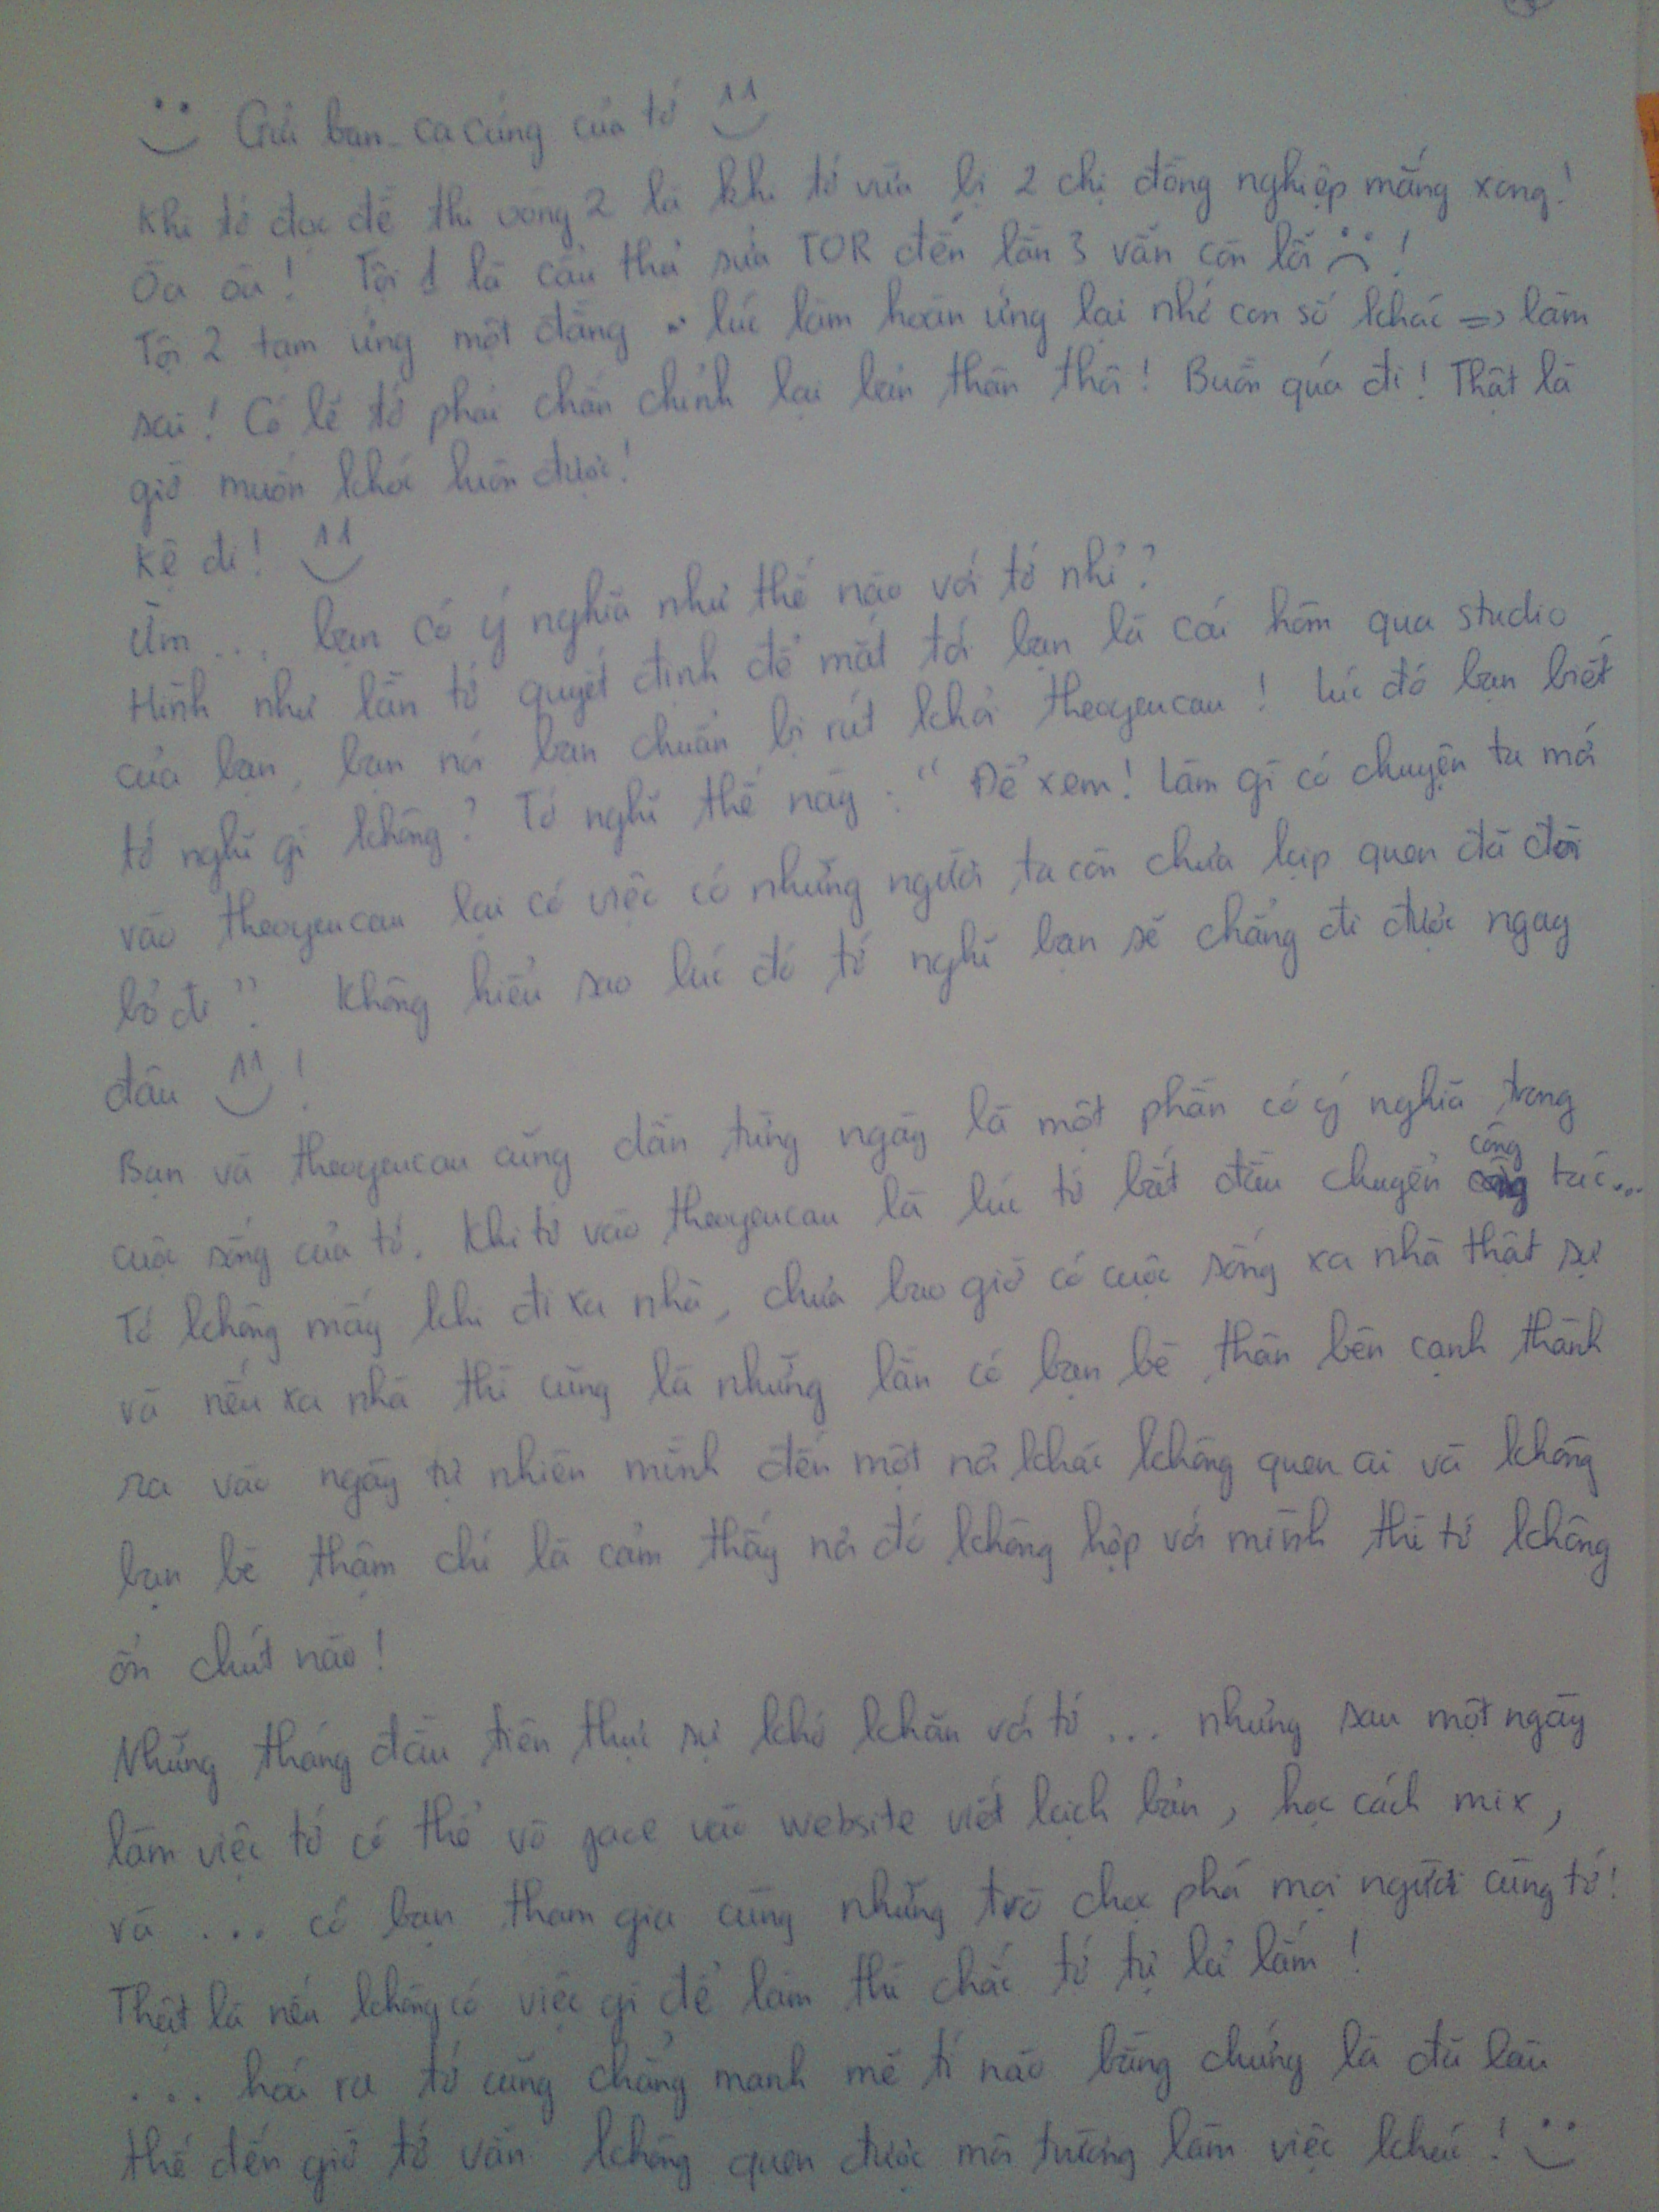 Gửi bạn cá cảng của tớ
Khi tớ đọc đề thi vòng 2 là khi tớ vừa bị 2 chị đồng nghiệp mắng xong!
Òa òa! Tội 1 là cẩu thả sửa TOR đến lần 3 vẫn còn lỗi !
Tội 2 tạm ứng một đằng lúc làm hoàn ứng lại nhớ con số khác => làm
sai! Có lẽ tớ phải chấn chỉnh lại bản thân thôi! Buồn quá đi! Thật là
giờ muốn khóc luôn được!
Kệ đi!
Ừm ... bạn có ý nghĩa như thế nào với tớ nhỉ?
Hình như lần tớ quyết định để mắt tới bạn là cái hôm qua studio
của bạn, bạn nói bạn chuẩn bị rút khỏi theoyeucau! Lúc đó bạn biết
tớ nghĩ gì không? Tớ nghĩ thế này: " Để xem! Làm gì có chuyện ta mới
vào theoyeucau lại có việc có những người ta còn chưa kịp quen đã đòi
bỏ đi". Không hiểu sao lúc đó tớ nghĩ bạn sẽ chẳng đi được ngay
đâu !
Bạn và theoyeucau cũng dần từng ngày là một phần có ý nghĩa trong
cuộc sống của tớ. Khi tớ vào theoyeucau là lúc tớ bắt đầu chuyển công tác...
Tớ không mấy khi đi xa nhà, chưa bao giờ có cuộc sống xa nhà thật sự
và nếu xa nhà thì cũng là những lần có bạn bè thân bên cạnh thành
ra vào ngày tự nhiên mình đến một nơi khác không quen ai và không
bạn bè thậm chí là cảm thấy nơi đó không hợp với mình thì tớ không
ổn chút nào!
Những tháng đầu tiên thực sự khó khăn với tớ ... nhưng sau một ngày
làm việc tớ có thể vô face vào website viết kịch bản, học cách mix,
và ... có bạn tham gia cùng những trò chọc phá mọi người cùng tớ!
Thật là nếu không có việc gì để làm thì chắc tớ tự kỉ lắm!
... hóa ra tớ cũng chẳng mạnh mẽ tí nào bằng chứng là đã lâu
thế đến giờ tớ vẫn không quen được môi trường làm việc khác!